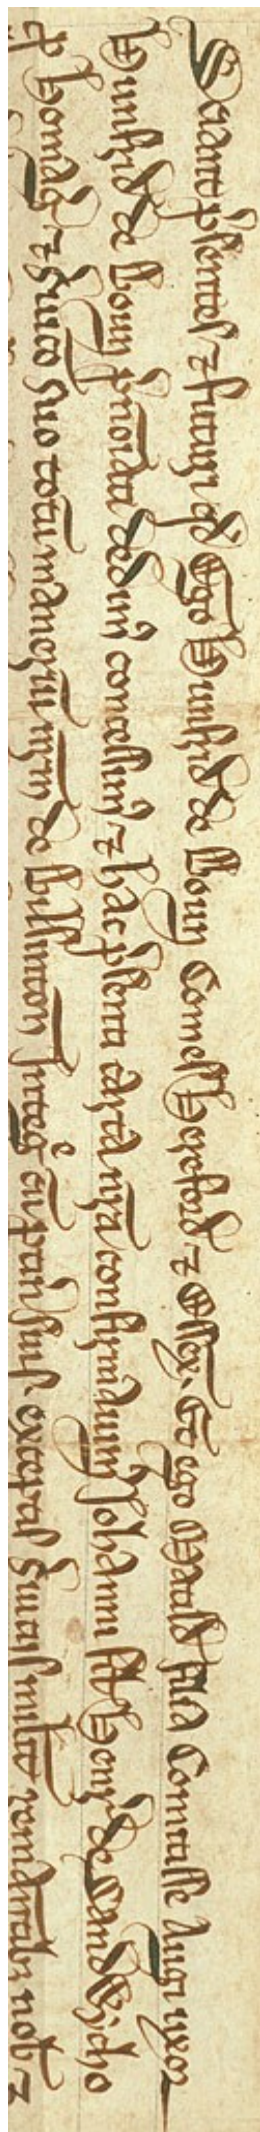 Sciant p'sentes ⁊ futuri qd Ego Hunfrid de Boun Comes Hereford ⁊ Essex. Et ego Matild filia Comitisse Augi uxor
Hunfrid de Boun p'norati dedim' concessim' ⁊ hac p'senti carta nr̄a confirmauim' Johanni fil Henr' de Sandwicho
p homag ⁊ s'uico suo totū maneriū nr̄m de Billinton Integ'e cū ptin' suis exceptis s'uiciis milit remanētibȝ nob ⁊